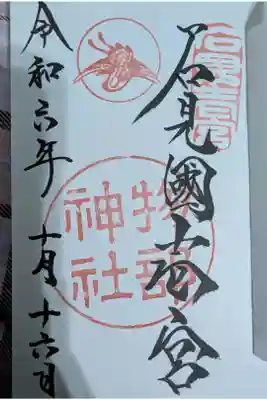 石見國一宮
物部神社
令和六年 十月十六日